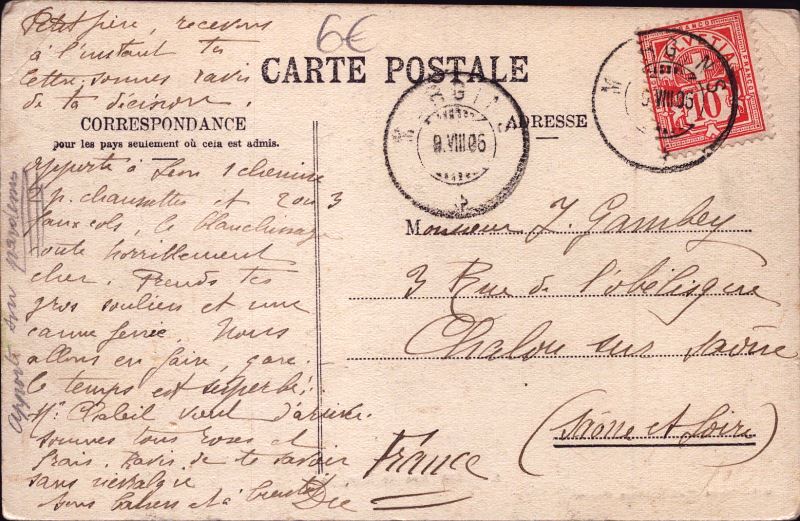 Petit père, recevons
à l'instant ta
lettre, sommes ravis
de ta décision.
6€
CARTE POSTALE
CORRESPONDANCE
pour les pays seulement où cela est admis.
ADRESSE
MORGINS
9.VIII.06
MORGINS
9.VIII.06
10
FRANCO
Apporte à Léon 1 chemise
1 p. chaussettes et 2 ou 3
faux cols, le blanchissage
coûte horriblement
cher. Prends tes
gros souliers et une
canne ferrée. Nous
allons en faire, gare.
le temps est superbe!
Mr vient d'arriver.
sommes tous roses et
frais. Ravis de te savoir
sans névralgie
bons baisers et à bientôt
Apporte son
Monsieur J. Gambey
3 Rue de l'obélisque
Chalon sur Saône
(Saône et Loire)
France